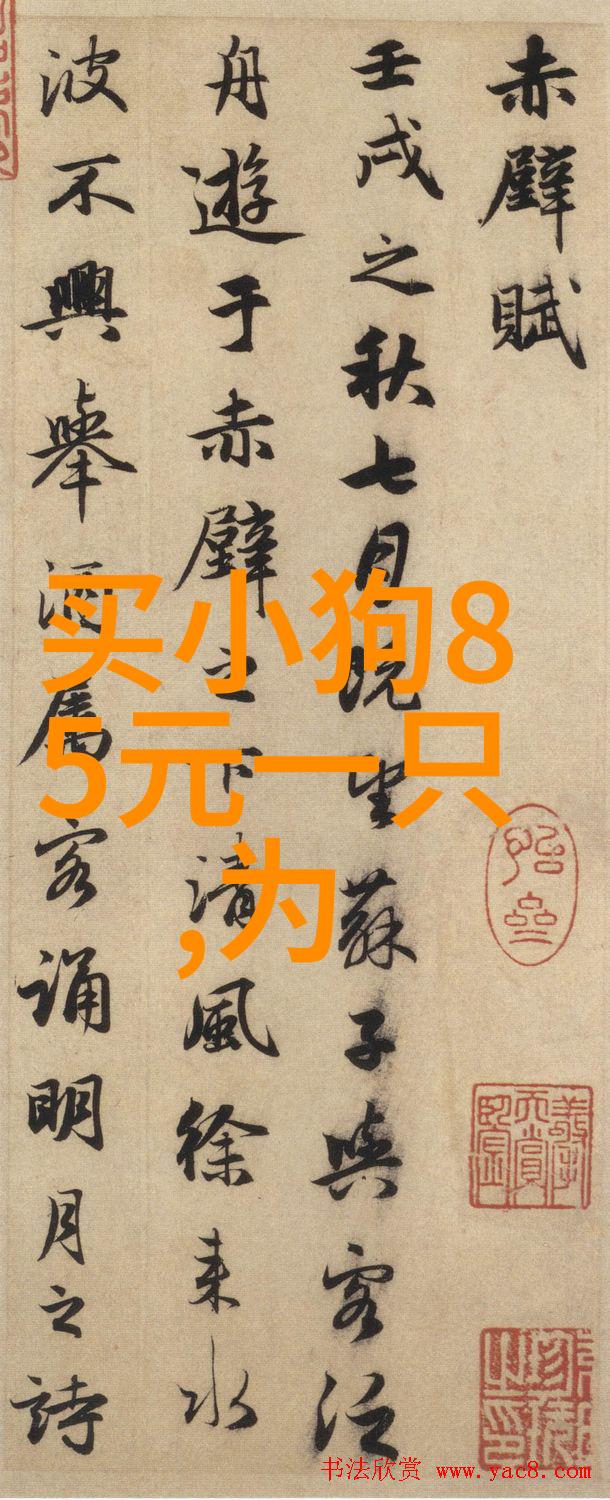 赤壁賦
壬戌之秋七月既望蘇子與客泛
舟遊于赤壁之下清風徐来水
波不興舉酒屬客誦明月之詩
买小狗8
5元一只
,为
书法欣赏 www.yac8.com